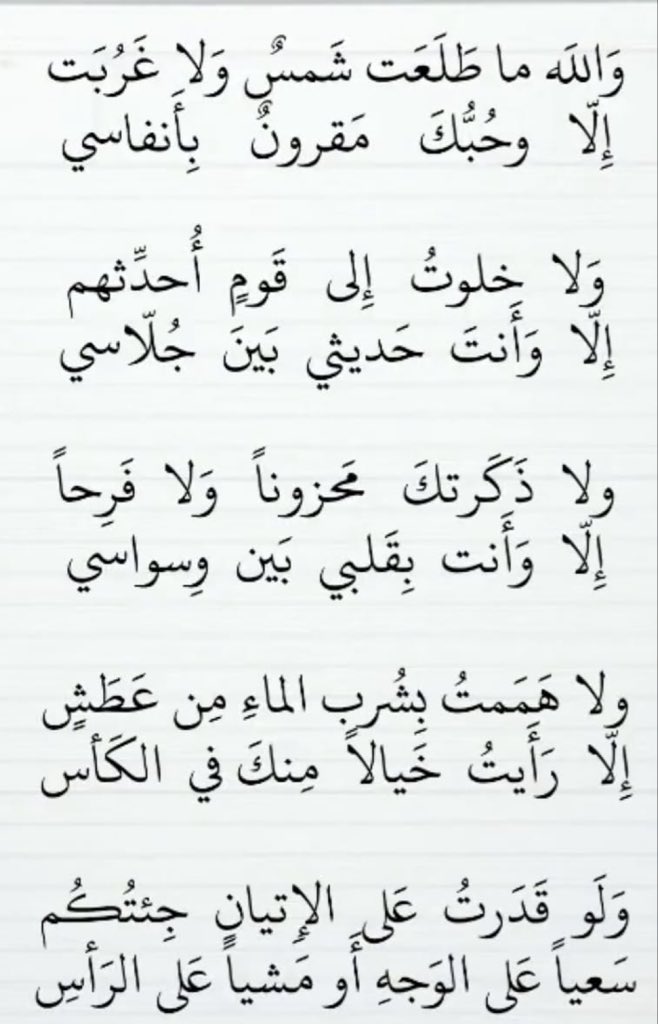 وَاللَه ما طَلَعَت شَمسٌ وَلا غَرُبَت
إِلّا وحُبُّكَ مَقرونٌ بِأَنفاسي
وَلا خلوتُ إِلى قَومٍ أُحدِّثهم
إِلّا وَأَنتَ حَديثي بَينَ جُلّاسي
ولا ذَكَرتكَ مَحزوناً وَلا فَرِحاً
إِلّا وَأَنت بِقَلبي بَين وِسواسي
ولا هَمَمتُ بِشُربِ الماءِ مِن عَطَشٍ
إِلّا رَأَيتُ خَيالاً مِنكَ في الكَأس
وَلَو قَدَرتُ عَلى الإِتيانِ جِئتُكُم
سَعياً عَلى الوَجهِ أَو مَشياً عَلى الرَأسِ